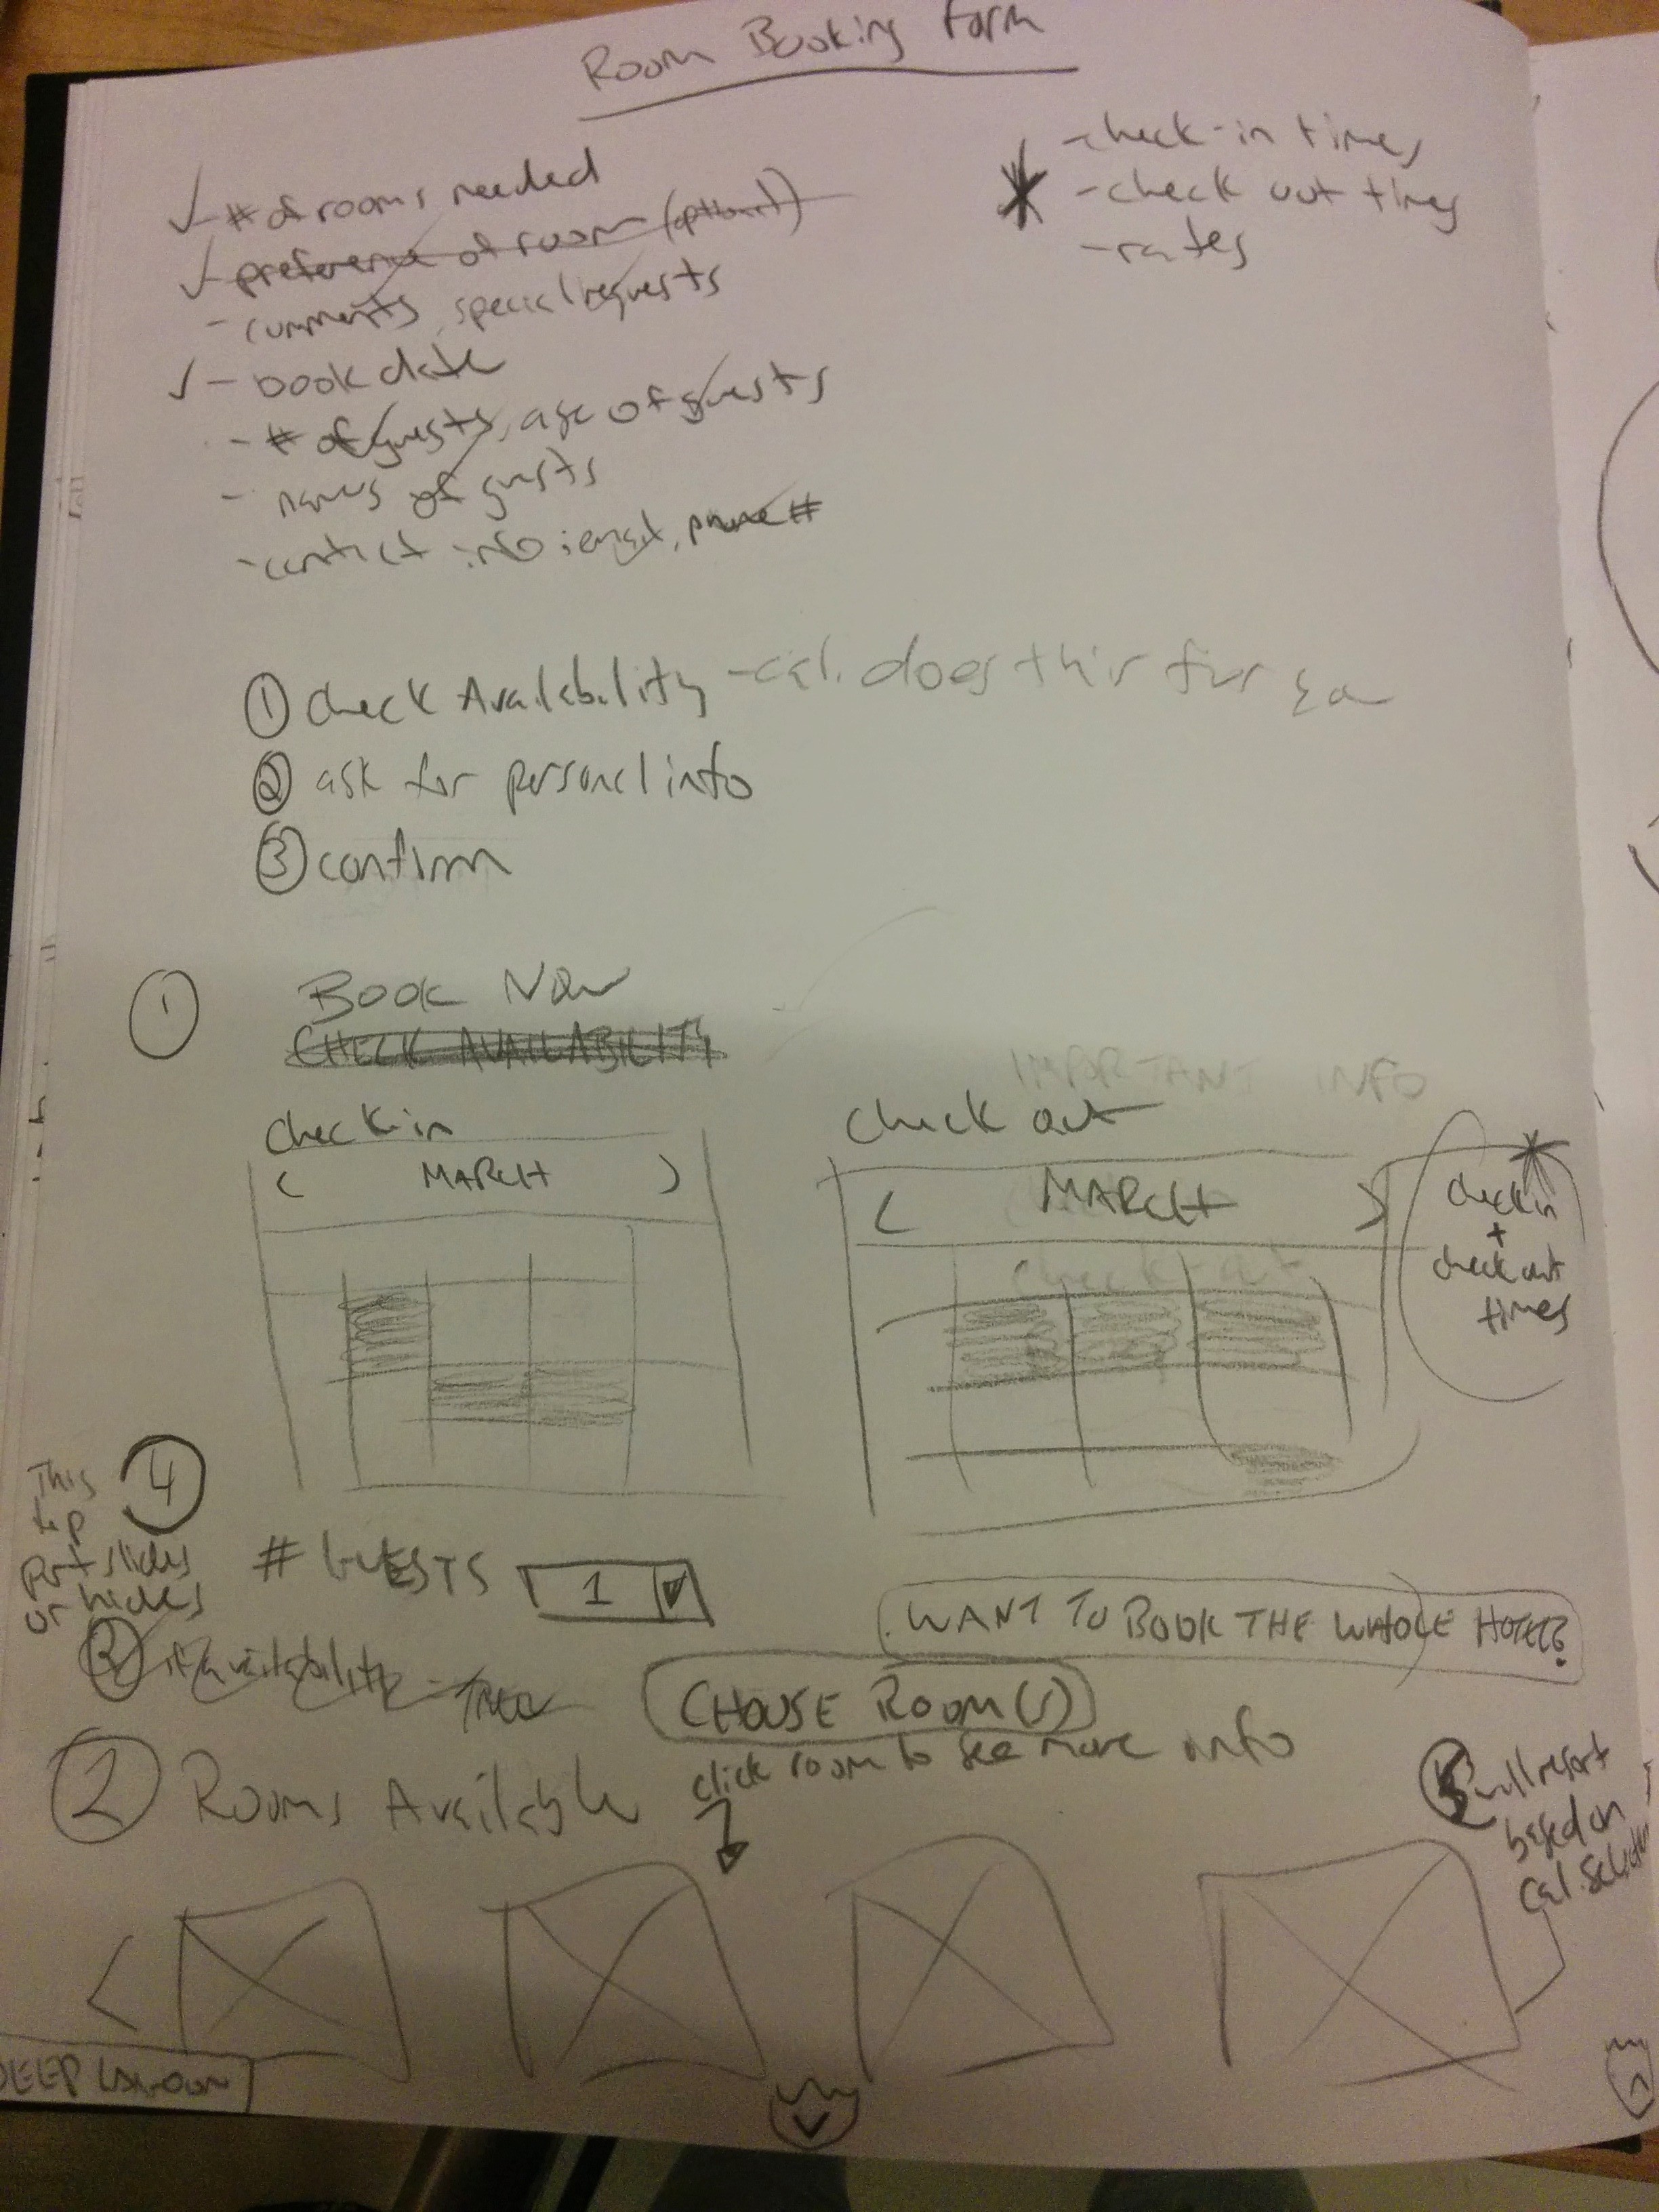 Room Booking Form
✓ - # of rooms needed
✓ - preference of room (optional)
- comments, special requests
✓ - book date
- # of guests, age of guests
- names of guests
- contact info: email, phone #
- check-in times
- check out times
- rates
① Check Availability - cal. does this for you
② ask for personal info
③ confirm
① BOOK NOW
CHECK AVAILABILITY
IMPORTANT INFO
Check in
Check out
< MARCH >
< MARCH >
check-out
check in
+
check out
times
④ This
top
part slides
or hides
# GUESTS 1
WANT TO BOOK THE WHOLE HOTEL?
if availability - then
CHOOSE ROOM(S)
② Rooms Available
click room to see more info
will resort
based on
cal. selection
DEEP LAGOON